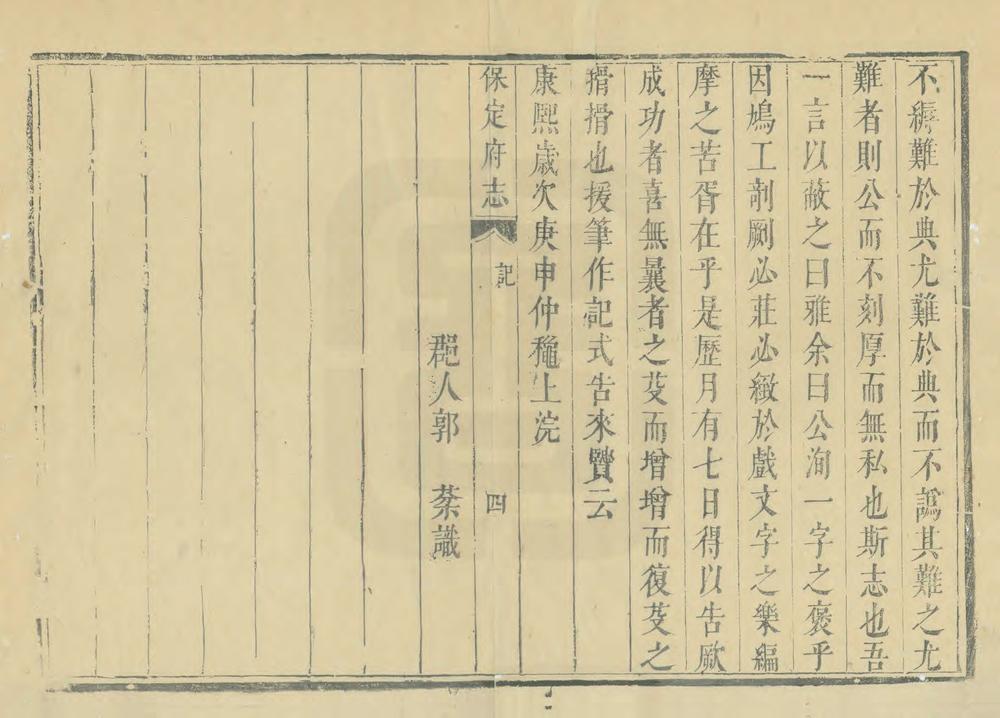 不繽難於典尤難於典而不譌其難之尤
難者則公而不刻厚而無私也斯志也吾
一言以蔽之曰雅余曰公洵一字之褒乎
因鳩工剞劂必莊必緻於戲文字之樂編
摩之苦胥在乎是歷月有七日得以告厥
成功者喜無曩者之芟而增增而復芟之
搰搰也援筆作記式告來覽云
康熙歲次庚申仲龝上浣
保定府志 記 四
郡人郭 棻識